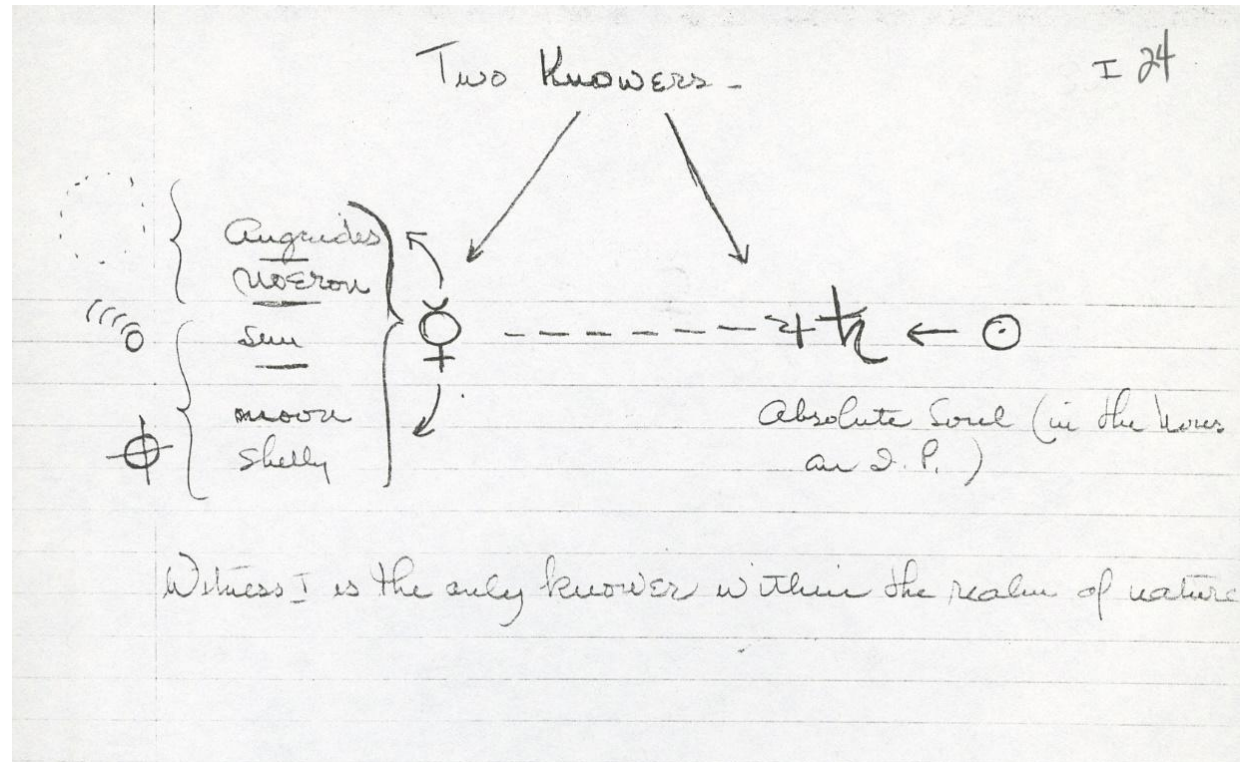 Two Knowers -
I 24
Augoides
Noeron
Sun
moon
Shelly
☿ - - - - - - - ♃ ♄ ← ☉
Absolute Soul (in the
an I. P.)
Witness I is the only knower within the realm of nature